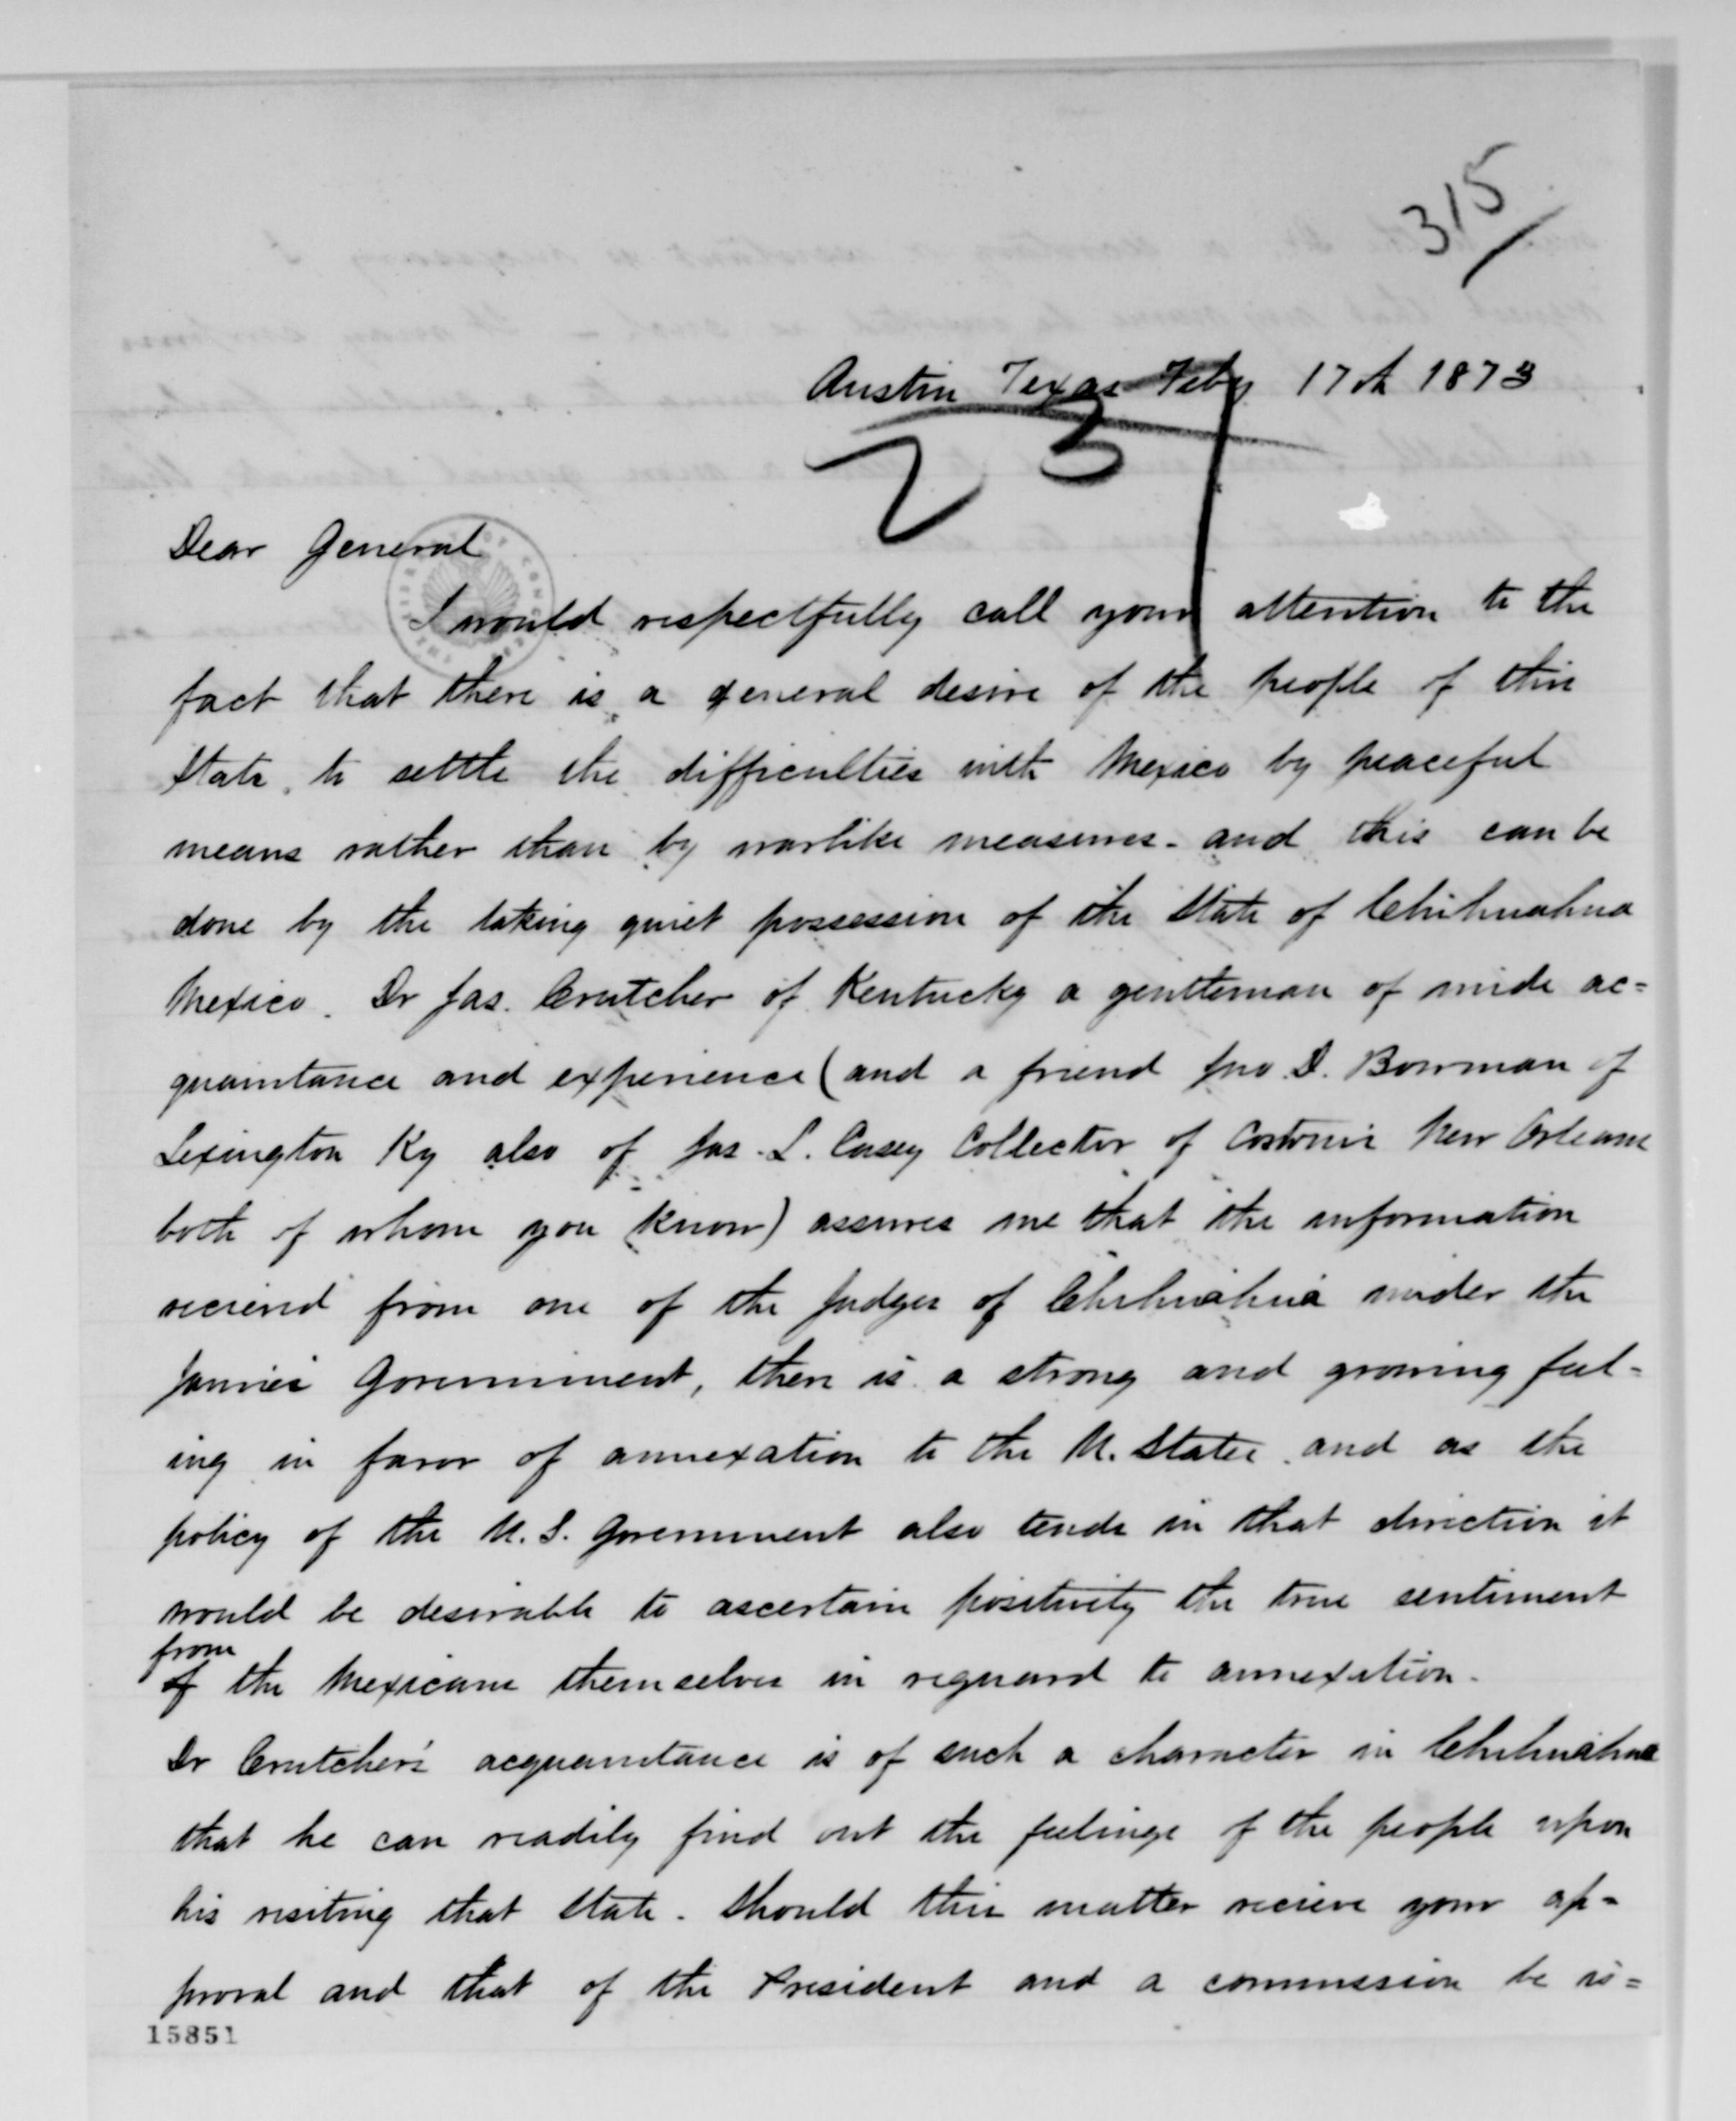 315
Austin Texas Feby 17th 1873
23
Dear General
I would respectfully call your attention to the
fact that there is a general desire of the people of this
State, to settle the difficulties with Mexico by peaceful
means rather than by warlike measures - and this can be
done by the taking quiet possession of the State of Chihuahua
Mexico. Dr Jas. Crutcher of Kentucky a gentleman of wide ac=
quaintance and experience (and a friend Jno. D. Bowman of
Lexington Ky also of Jas. L. Casey Collector of Customs New Orleans
both of whom you know) assures me that the information
recieved from one of the Judges of Chihuahua under the
Government, there is a strong and growing feel=
ing in favor of annexation to the U. States and as the
policy of the U.S. Government also tends in that direction it
would be desirable to ascertain positivity the true sentiment
from
of the Mexicans themselves in reguard to annexation.
Dr Crutcher's acquaintance is of such a character in Chihuahua
that he can readily find out the feelings of the people upon
his visiting that State. Should this matter recieve your ap=
proval and that of the President and a commission be is=
15851